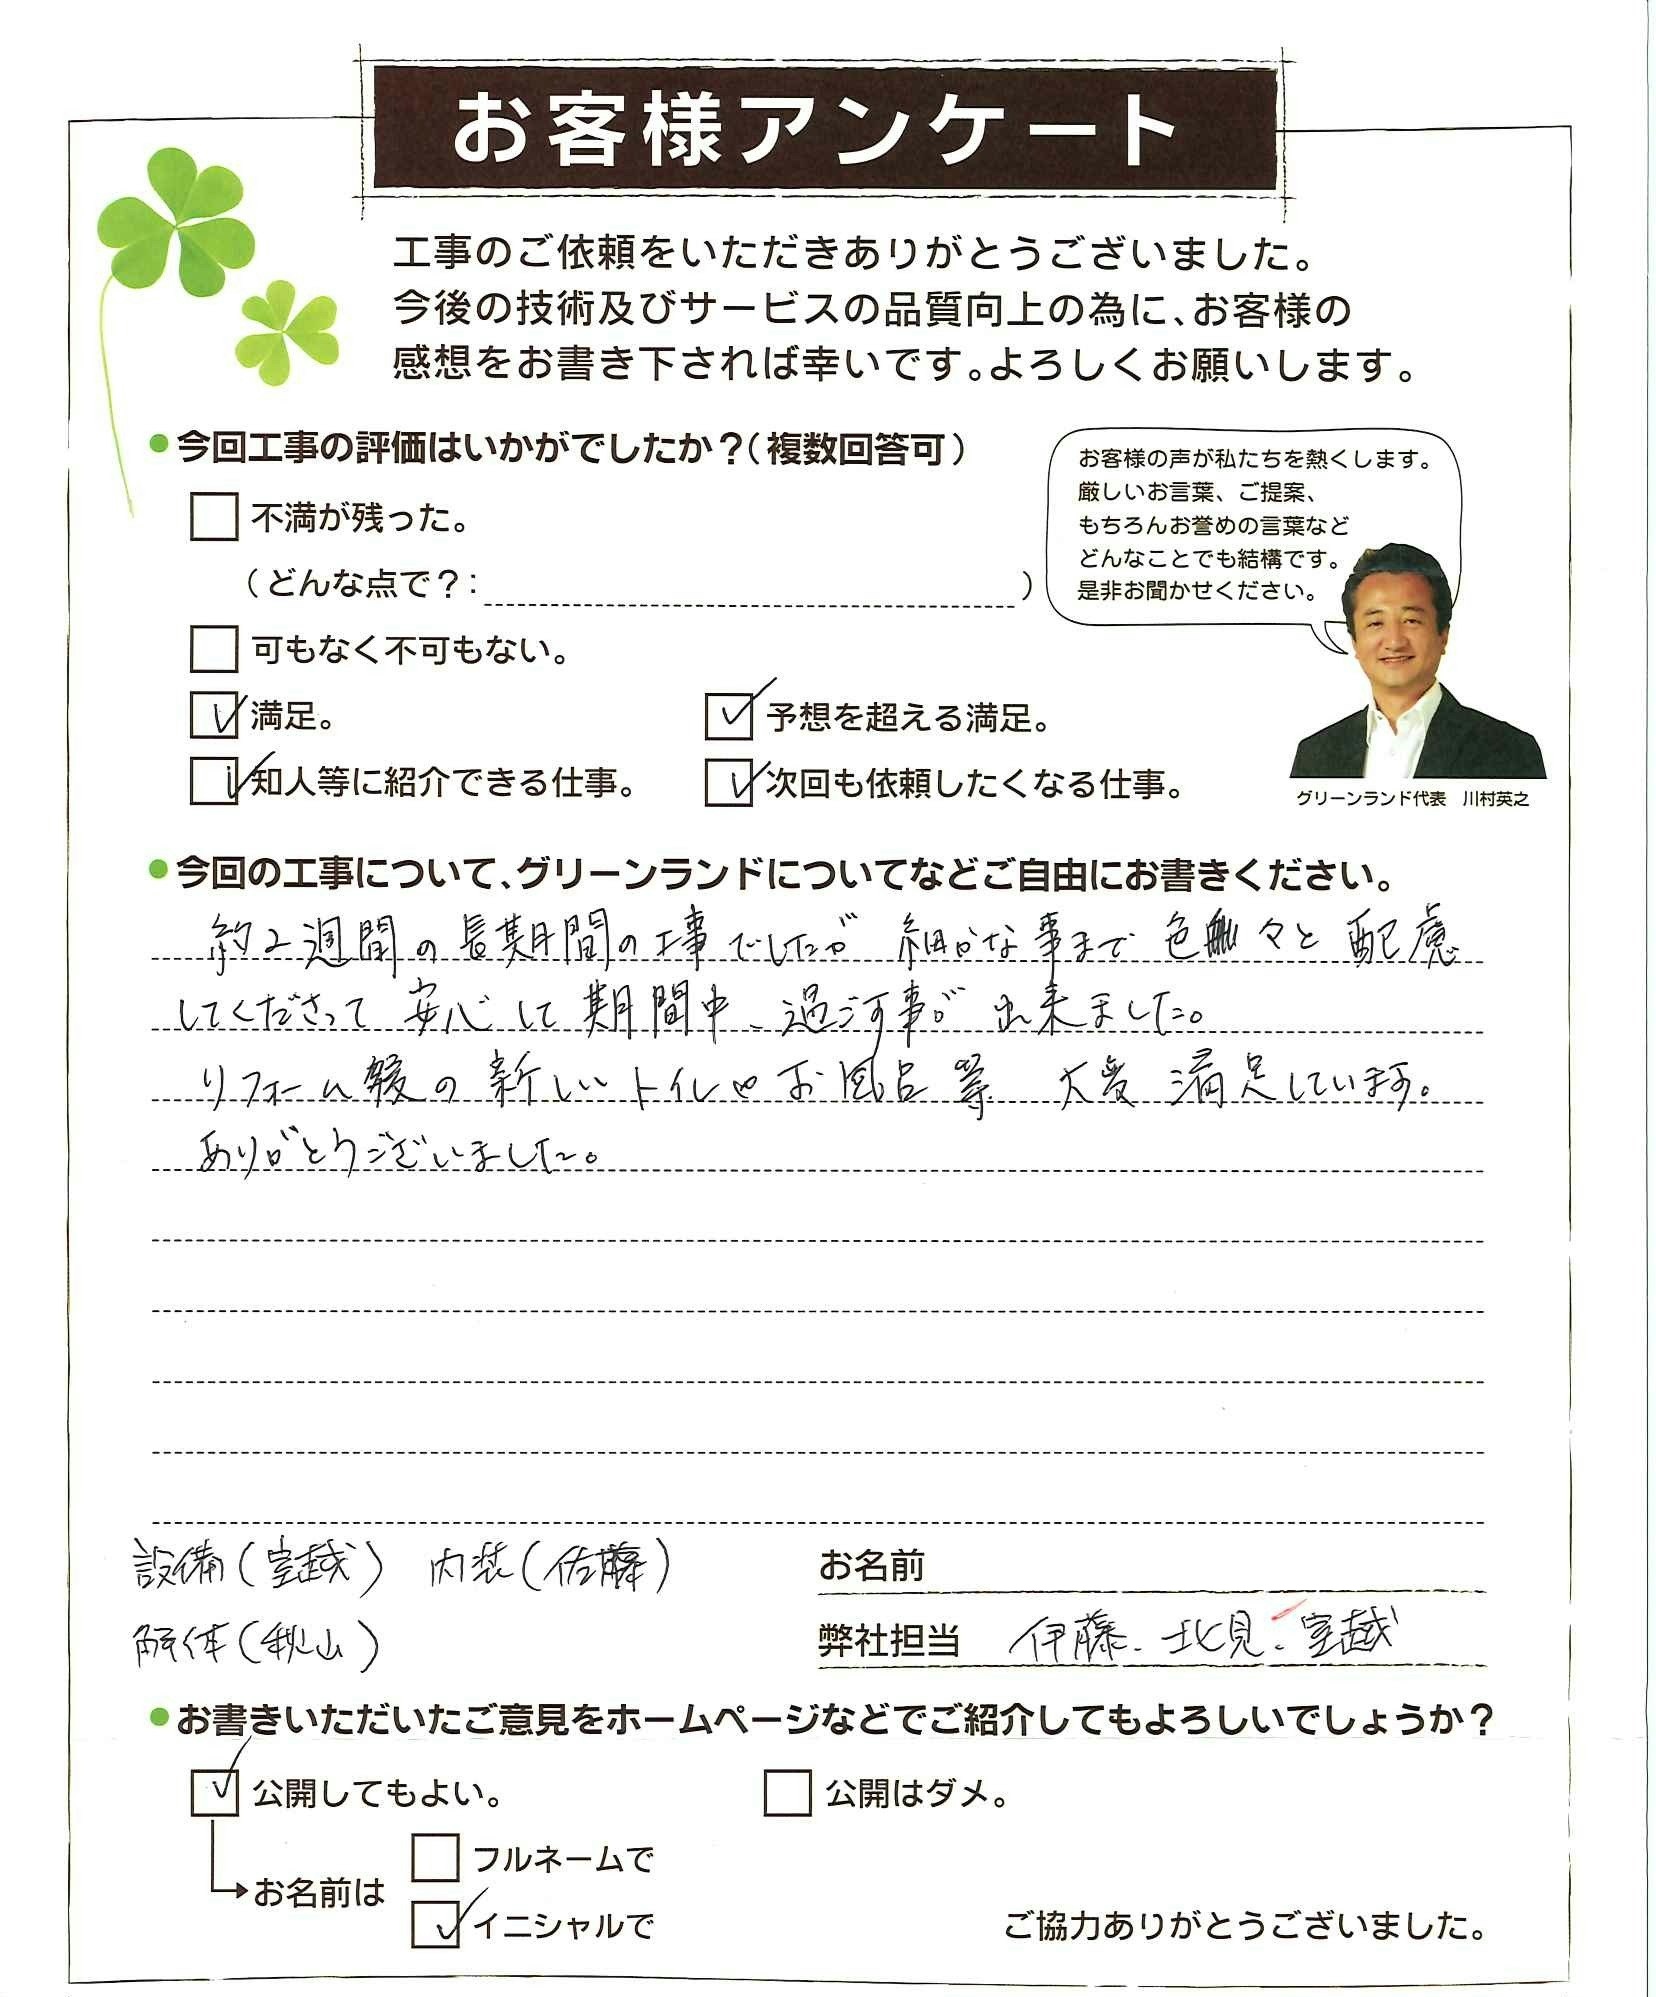 お客様アンケート
工事のご依頼をいただきありがとうございました。
今後の技術及びサービスの品質向上の為に、お客様の
感想をお書き下されば幸いです。よろしくお願いします。
今回工事の評価はいかがでしたか？（複数回答可）
お客様の声が私たちを熱くします。
厳しいお言葉、ご提案、
もちろんお誉めの言葉など
どんなことでも結構です。
是非お聞かせください。
不満が残った。
（どんな点で？： ）
可もなく不可もない。
満足。 予想を超える満足。
知人等に紹介できる仕事。 次回も依頼したくなる仕事。
グリーンランド代表 川村英之
今回の工事について、グリーンランドについてなどご自由にお書きください。
約2週間の長期間の工事でしたが 細かな事まで 色々と 配慮
してくださって 安心して 期間中、過ごす事が 出来ました。
リフォーム後の 新しいトイレやお風呂等 大変 満足しています。
ありがとうございました。
設備(室越) 内装(佐藤)
お名前
解体(秋山)
弊社担当 伊藤、北見、室越
お書きいただいたご意見をホームページなどでご紹介してもよろしいでしょうか？
公開してもよい。 公開はダメ。
フルネームで
お名前は
イニシャルで
ご協力ありがとうございました。